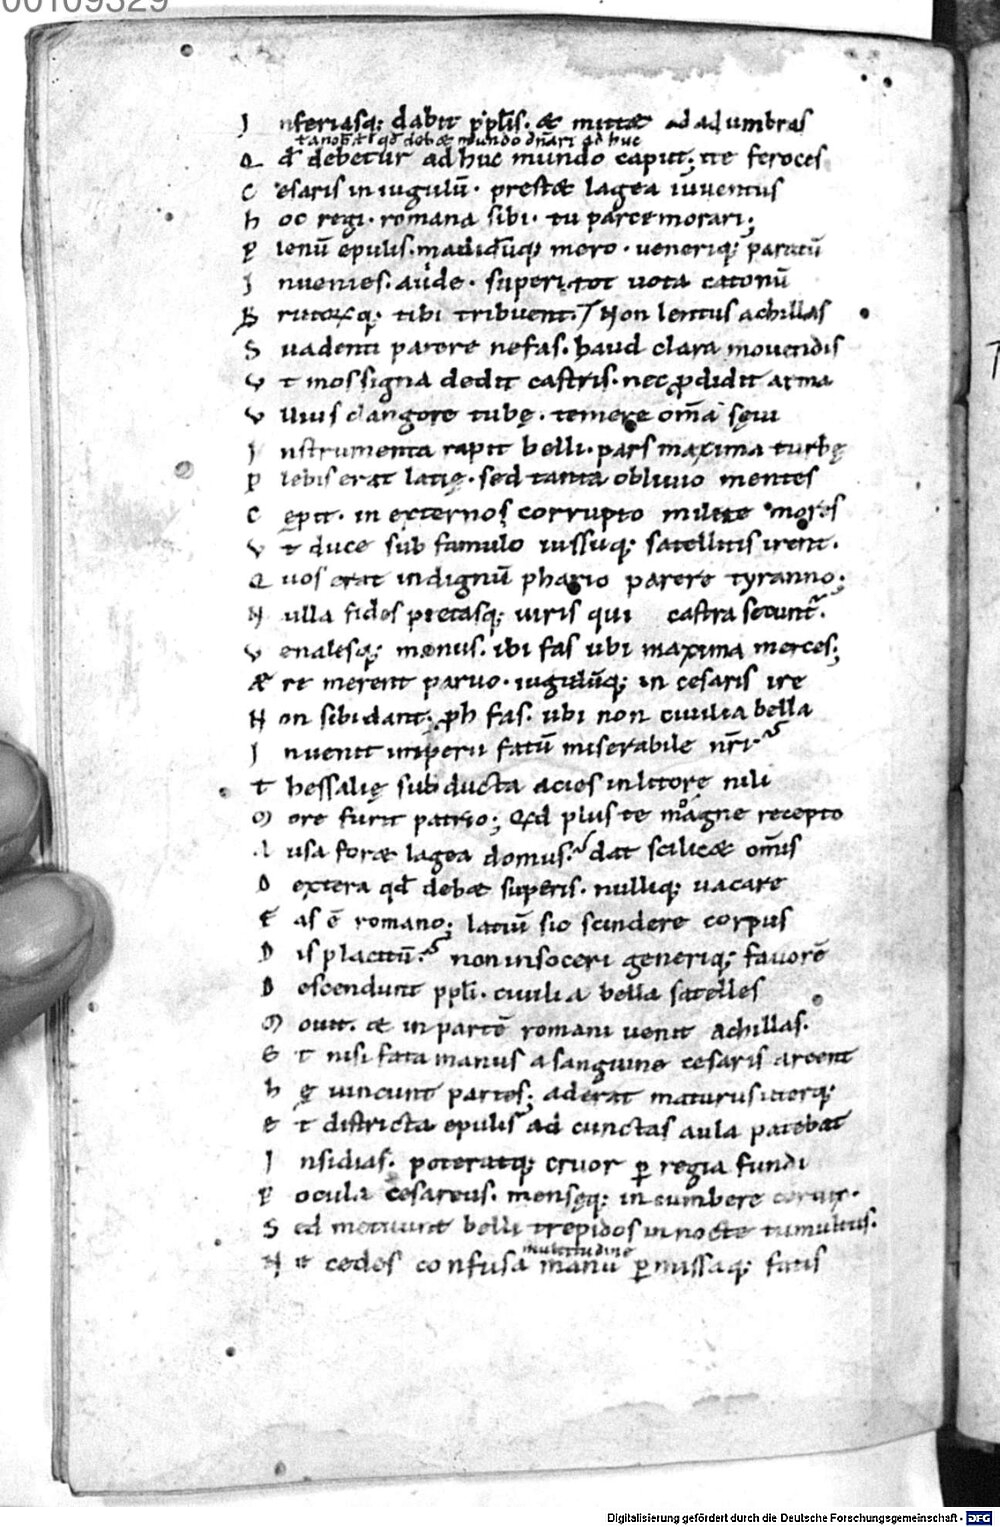 00109329
I nferiasq; dabit p̄pl̄is. & mitt& ad ad umbras
mundo dn̄ari ad huc
Q d̄ debetur ad huc mundo caput; ite feroces
C esaris in iugulū. prest& lagea iuuentus
h oc regi. romana sibi. tu parce morari;
P lenū epulis. madidūq; mero. uenerīq; paratū
I nuenies. aude. superi tot uota catonū
B rutorꝝq; tibi tribuent. / Non lentus achillas
S uadenti parere nefas. haud clara mouendis
V t mos signa dedit castris. nec ꝓdidit arma
V llius clangore tubę. temere om̄a sęui
I nstrumenta rapit belli. pars maxima turbę
P lebis erat latię. sed tanta obliuio mentes
C epit. in externos corrupto milite mores
V t duce sub famulo iussuq; satellitis irent.
Q uos erat indignū phario parere tyranno;
N ulla fides pietasq; uiris qui castra secunt᷒.
V enalesq; manus. ibi fas ubi maxima merces;
Æ re merent paruo. iugulūq; in cesaris ire
N on sibi dant; ꝓh fas. ubi non ciuilia bella
I nuenit imperii fatū miserabile nr̄i
T hessalię subducta acies in litore nili
M ore furit patrio; Qd plus te magne recepto
A usa for& lagea domus. dat scilic& om̄is
D extera qd̄ deb& superis. nulliq; uacare
F as ē romano; latiū sic scindere corpus
D is placitū. non in soceri generiq; fauorē
D escendunt ppl̄i. ciuilia bella satelles
M ouit. & in partē romani uenit achillas.
E t nisi fata manus a sanguine cesaris arcent
h ę uincunt partes; aderat maturus uterq;
E t districta epulis ad cunctas aula patebat
I nsidias. poteratq; cruor ꝑ regia fundi
P ocula cesareus. mensęq; incumbere ceruix.
S ed metuunt belli trepidos in nocte tumultus.
multitudine
N e cedes confusa manu ꝑmissaq; fatis
Digitalisierung gefördert durch die Deutsche Forschungsgemeinschaft - DFG